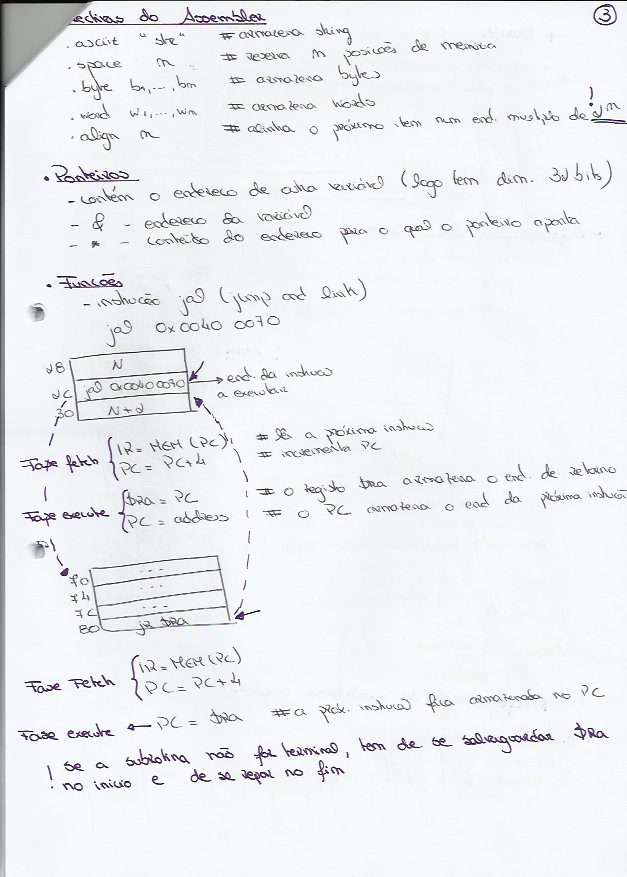 ectivas do Assembler
3
.asciit "str" # armazena string
.space n # reserva n posições de memória
.byte b1,...,bm # armazena bytes
.word w1,...,wm # armazena words
.align n # alinha o próximo item num end. multiplo de 2^n
!
• Ponteiros
- contém o endereço de outra variável (logo tem dim. 32 bits)
- & - endereço da variável
- * - conteúdo do endereço para o qual o ponteiro aponta
• Funções
- instrução jal (jump and link)
jal 0x0040 0070
28 N
2C jal 0x00400070 → end. da instruçã
a executar
30 N+2
Fase fetch { IR = MEM(PC); # lê a próxima instruçã
PC = PC+4 # incrementa PC
Fase execute { $RA = PC # o registo $RA armazena o end. de retorno
PC = address # o PC armazena o end da próxima instruçã
70 ...
74 ...
7C ...
80 jr $RA
Fase Fetch { IR = MEM(PC)
PC = PC+4
Fase execute ← PC = $RA # a próx. instruçã fica armazenada no PC
! se a subrotina não for terminal, tem de se salvaguardar $RA
no inicio e de se repor no fim